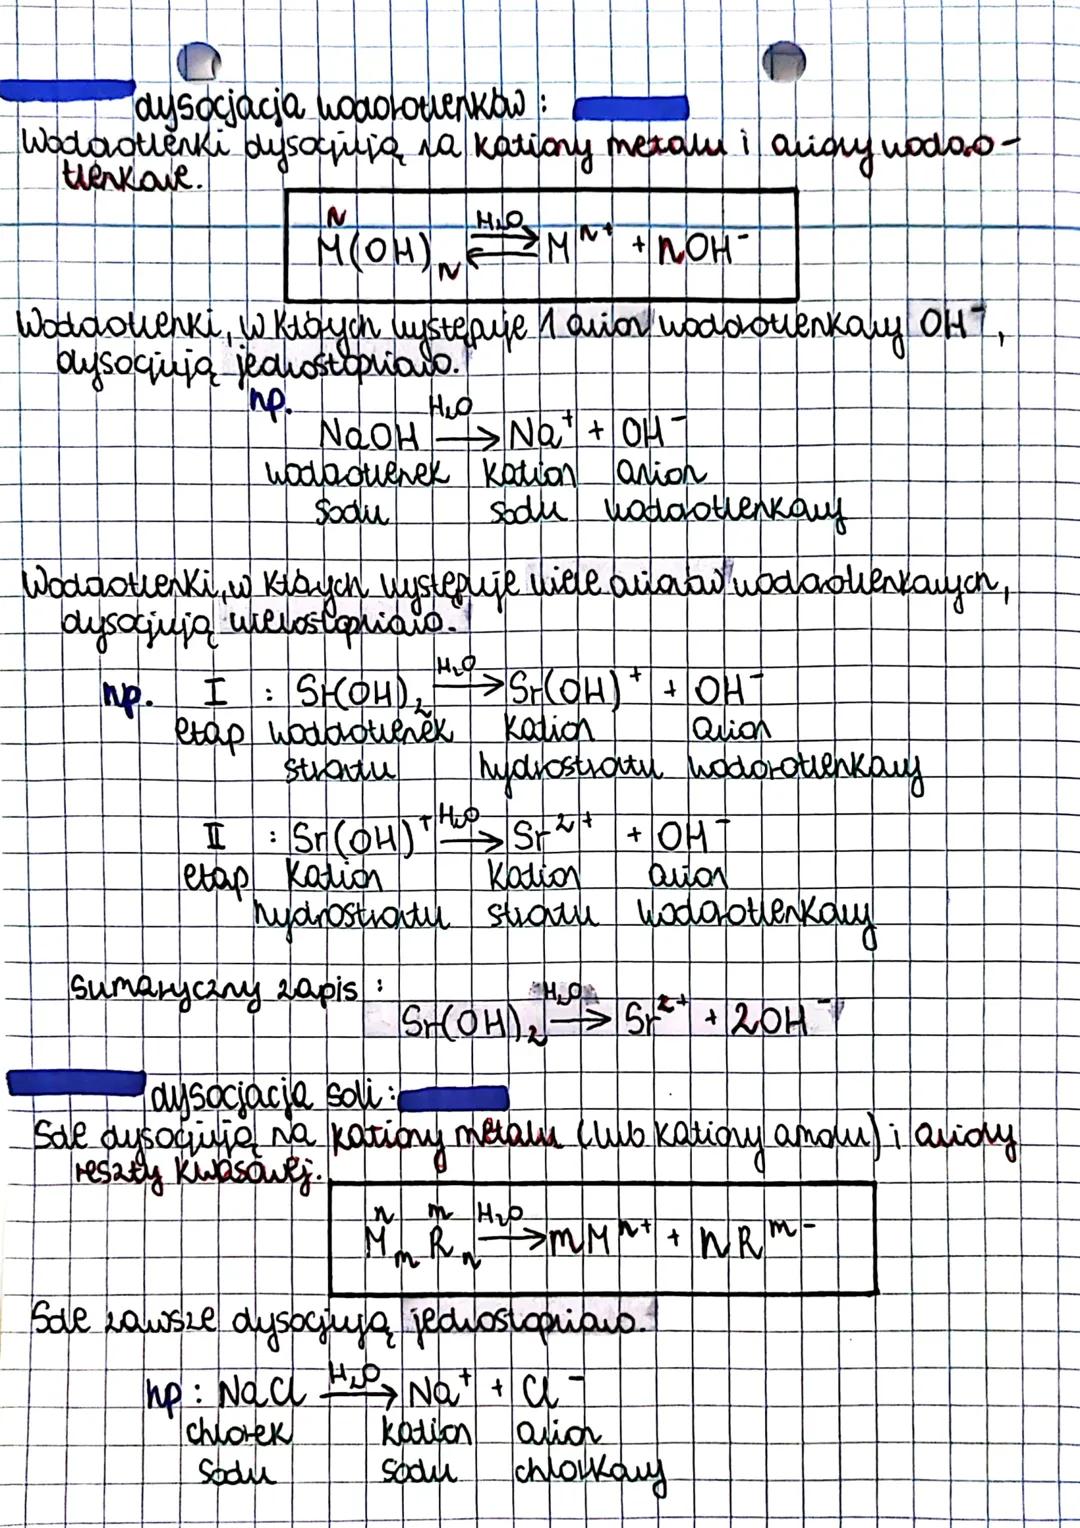 dysocjacja wodorotlenków :
Wodorotlenki dysocjują na kationy metalu i aniony wodoro-
tlenkowe.
n
M(OH)n ⇌ H₂O Mⁿ⁺ + nOH⁻
Wodorotlenki, w których występuje 1 anion wodorotlenkowy OH⁻,
dysocjują jednostopniowo.
np.
NaOH →H₂O Na⁺ + OH⁻
wodorotlenek kation anion
sodu sodu wodorotlenkowy
Wodorotlenki, w których występuje wiele anionów wodorotlenkowych,
dysocjują wielostopniowo.
np. I : Sr(OH)₂ →H₂O Sr(OH)⁺ + OH⁻
etap wodorotlenek kation anion
strontu hydrostrontu wodorotlenkowy
II : Sr(OH)⁺ →H₂O Sr²⁺ + OH⁻
etap kation kation anion
hydrostrontu strontu wodorotlenkowy
sumaryczny zapis :
Sr(OH)₂ →H₂O Sr²⁺ + 2OH⁻
dysocjacja soli :
Sole dysocjują na kationy metalu (lub kationy amonu) i aniony
reszty kwasowej.
n m
MmRn →H₂O mMⁿ⁺ + nRᵐ⁻
Sole zawsze dysocjują jednostopniowo.
np : NaCl →H₂O Na⁺ + Cl⁻
chlorek kation anion
sodu sodu chlorkowy